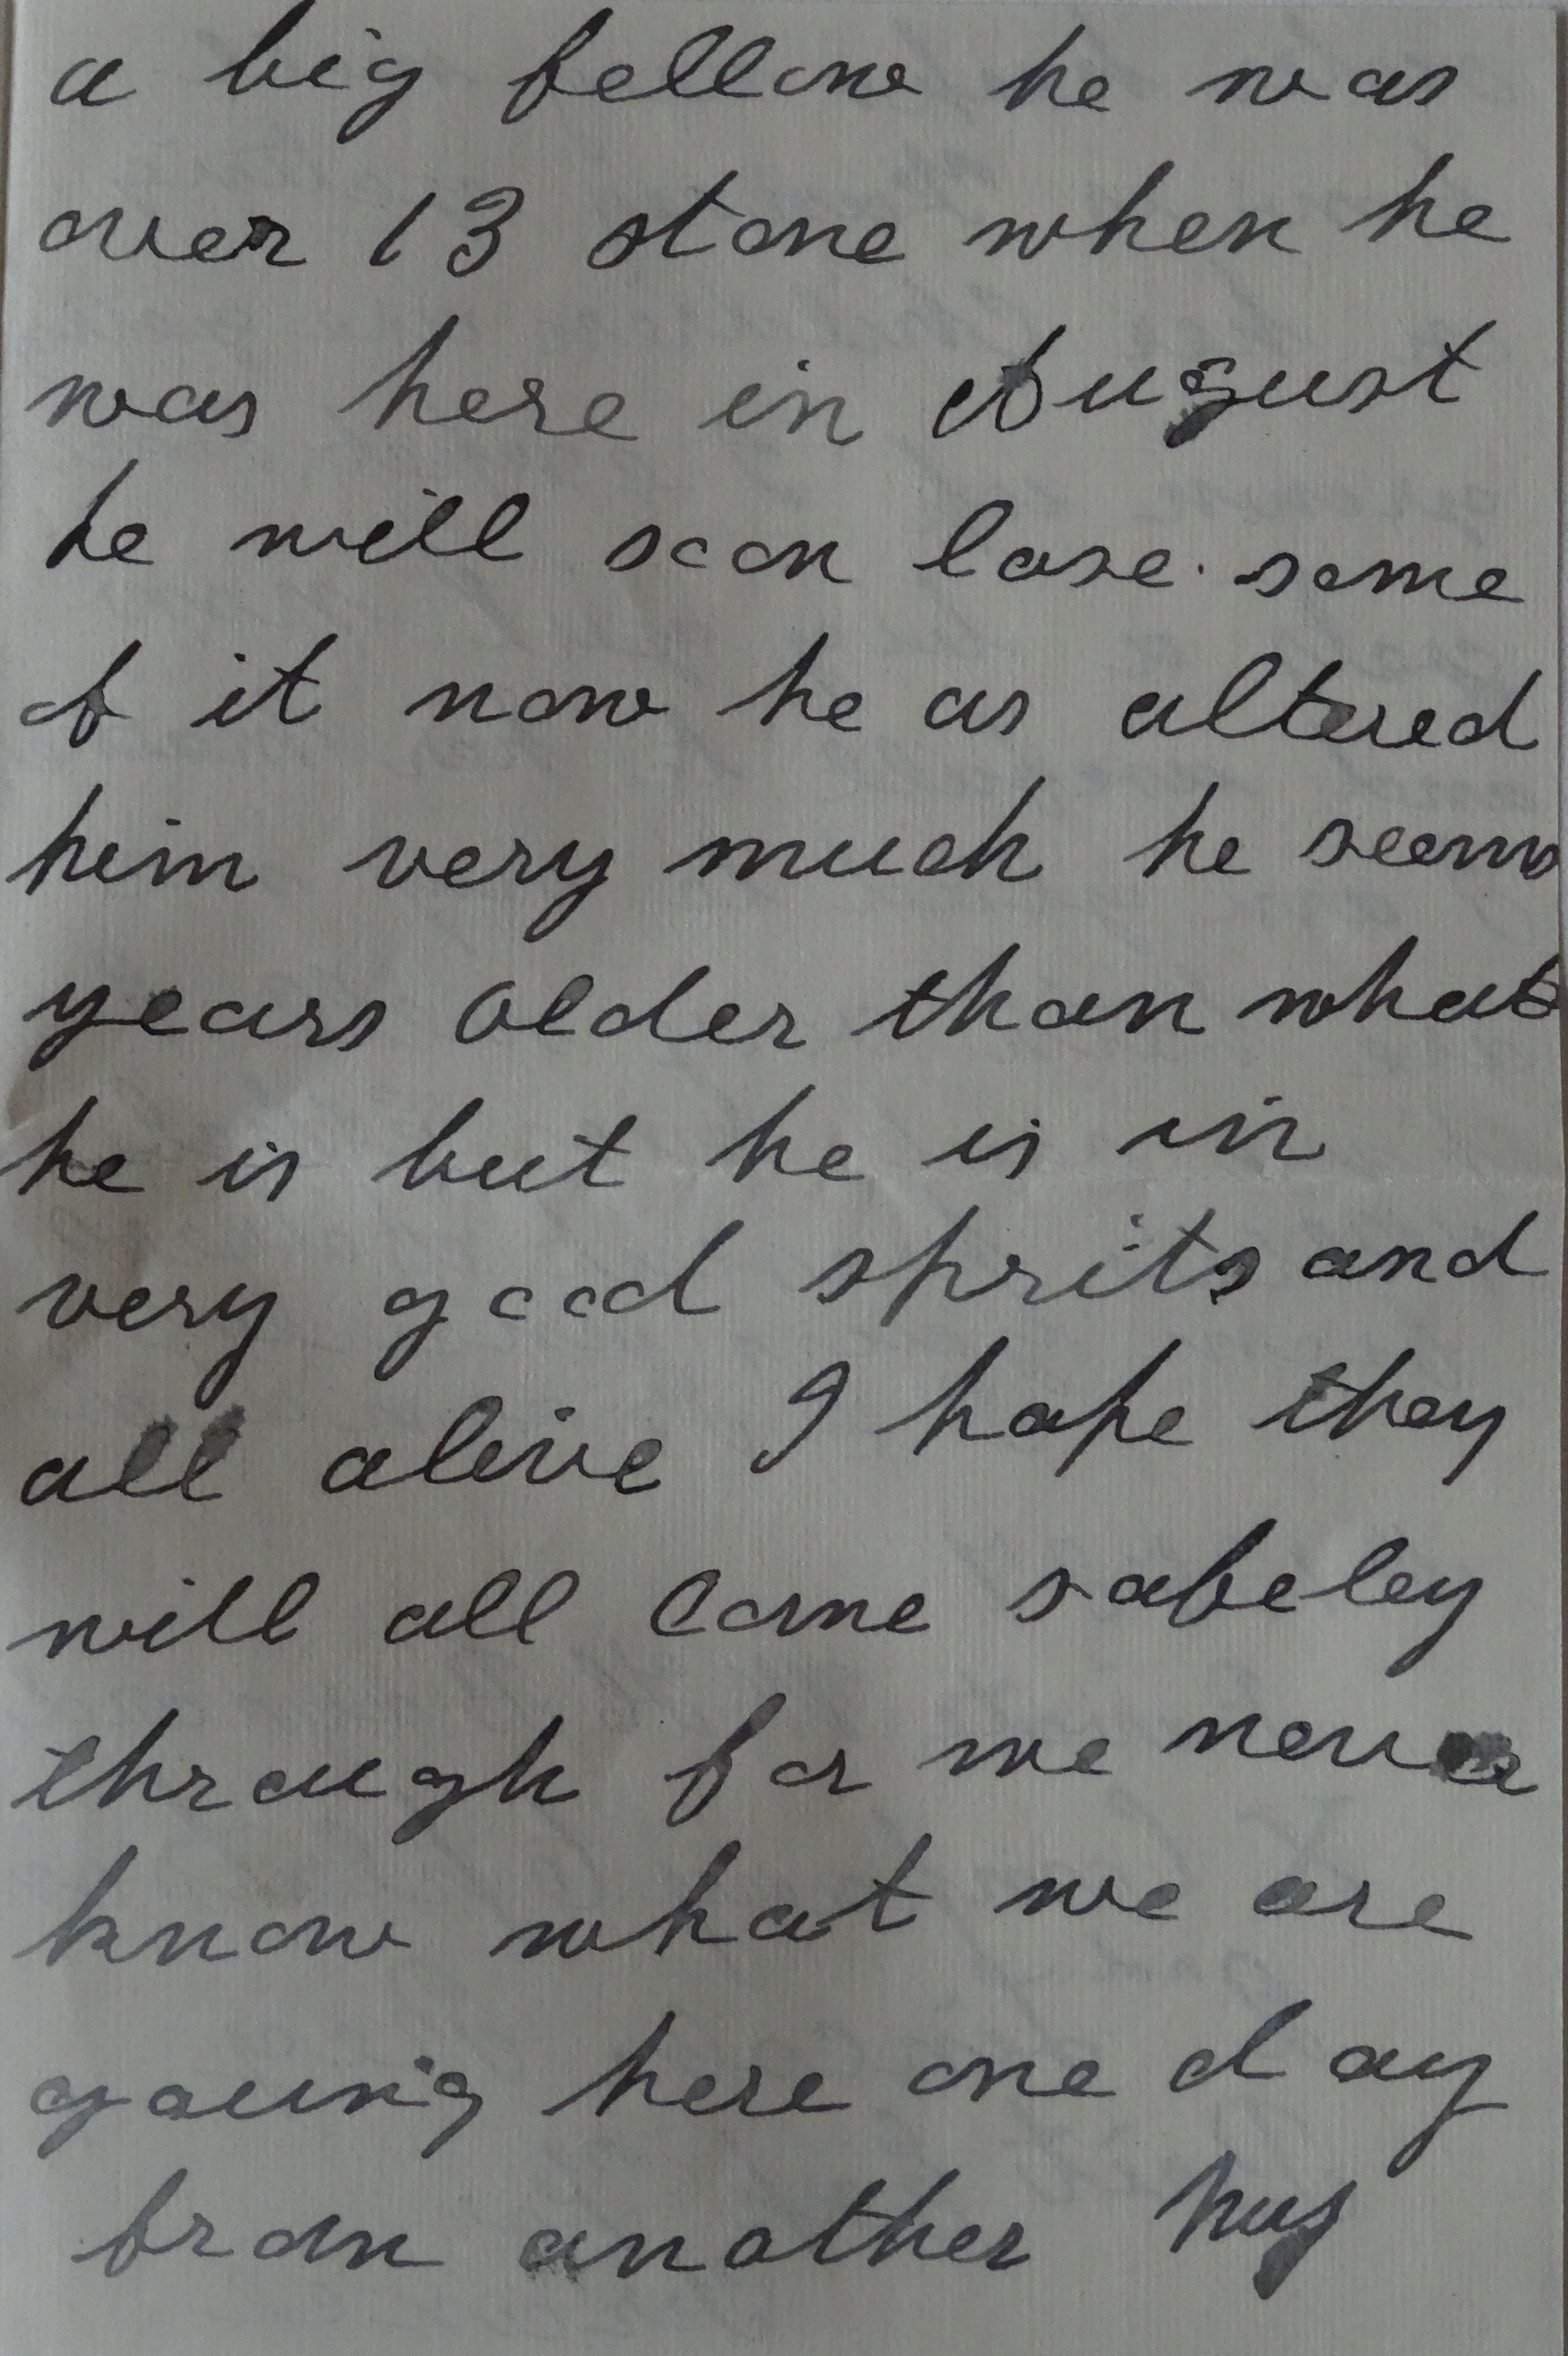 a big fellow he was
over 13 stone when he
was here in August
he will soon lose some
of it now he as altered
him very much he seems
years older than what
he is but he is in
very good sprits and
all alive I hope they
will all come safeley
through for we never
know what we are
gouing here one day
from another